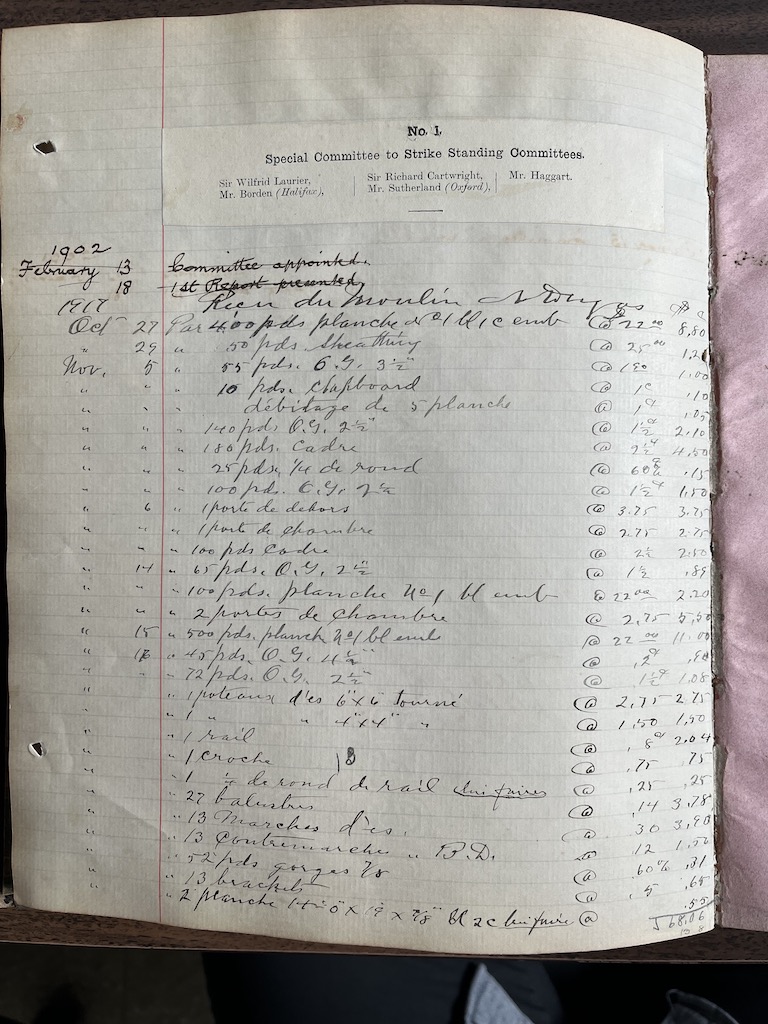 No. 1.
Special Committee to Strike Standing Committees.
Sir Wilfrid Laurier, Sir Richard Cartwright, Mr. Haggart.
Mr. Borden (Halifax), Mr. Sutherland (Oxford),
1902
February 13 Committee appointed.
18 1st Report presented
1917 Recu du Moulin
Oct 27 Par 400 pds planche No 1 emb @ 22.00 8,80
" 29 " 50 pds. Sheathing @ 25.00
Nov. 5 " 55 pds. O.G. 3½" @ 1.00
" " 10 pds. Clapboard @ 1c .10
" " débitage de 5 planche @ 1c .05
" " 140 pds O.G. 2½" @ 1½c 2.10
" " " 180 pds. Cadre @ 2½c 4,50
" " " 25 pds, ¼ de rond @ 60c .15
" " " 100 pds. O.G. 2½ @ 1½c 1,50
" 6 " 1 porte de dehors @ 3.75 3.75
" " " 1 porte de chambre @ 2.75 2.75
" " " 100 pds Cadre @ 2½ 2.50
" 14 " 65 pds. O.G. 2½" @ 1½
" " " 100 pds. planche No 1 bl emb @ 22.00 2.20
" " " 2 portes de chambre @ 2,75 5,50
" 15 " 500 pds. planch No 1 bl emb @ 22.00 11.00
" 16 " 45 pds. O.G. 4½" @ .2c .90
" " " 72 pds. O.G. 2½" @ 1½c 1,08
" " 1 poteaux d'es 6"x6" tourné @ 2,75 2.75
" " 1 " " 4"x4" " @ 1,50 1,50
" " 1 rail @ .8c 2.04
" " 1 croche @ .75 .75
" " 1 ¼ de rond de rail @ .25 .25
" " 27 balustres @ .14 3,78
" " 13 Marches d'es. @ 30 3,90
" " 13 Contremarches " B.D. @ 12
" " 52 pds gorges 7/8 @ 60% .31
" " 13 brackets @ .5 .65
" 2 planche 7/8" bl 2c @ .55
68.06